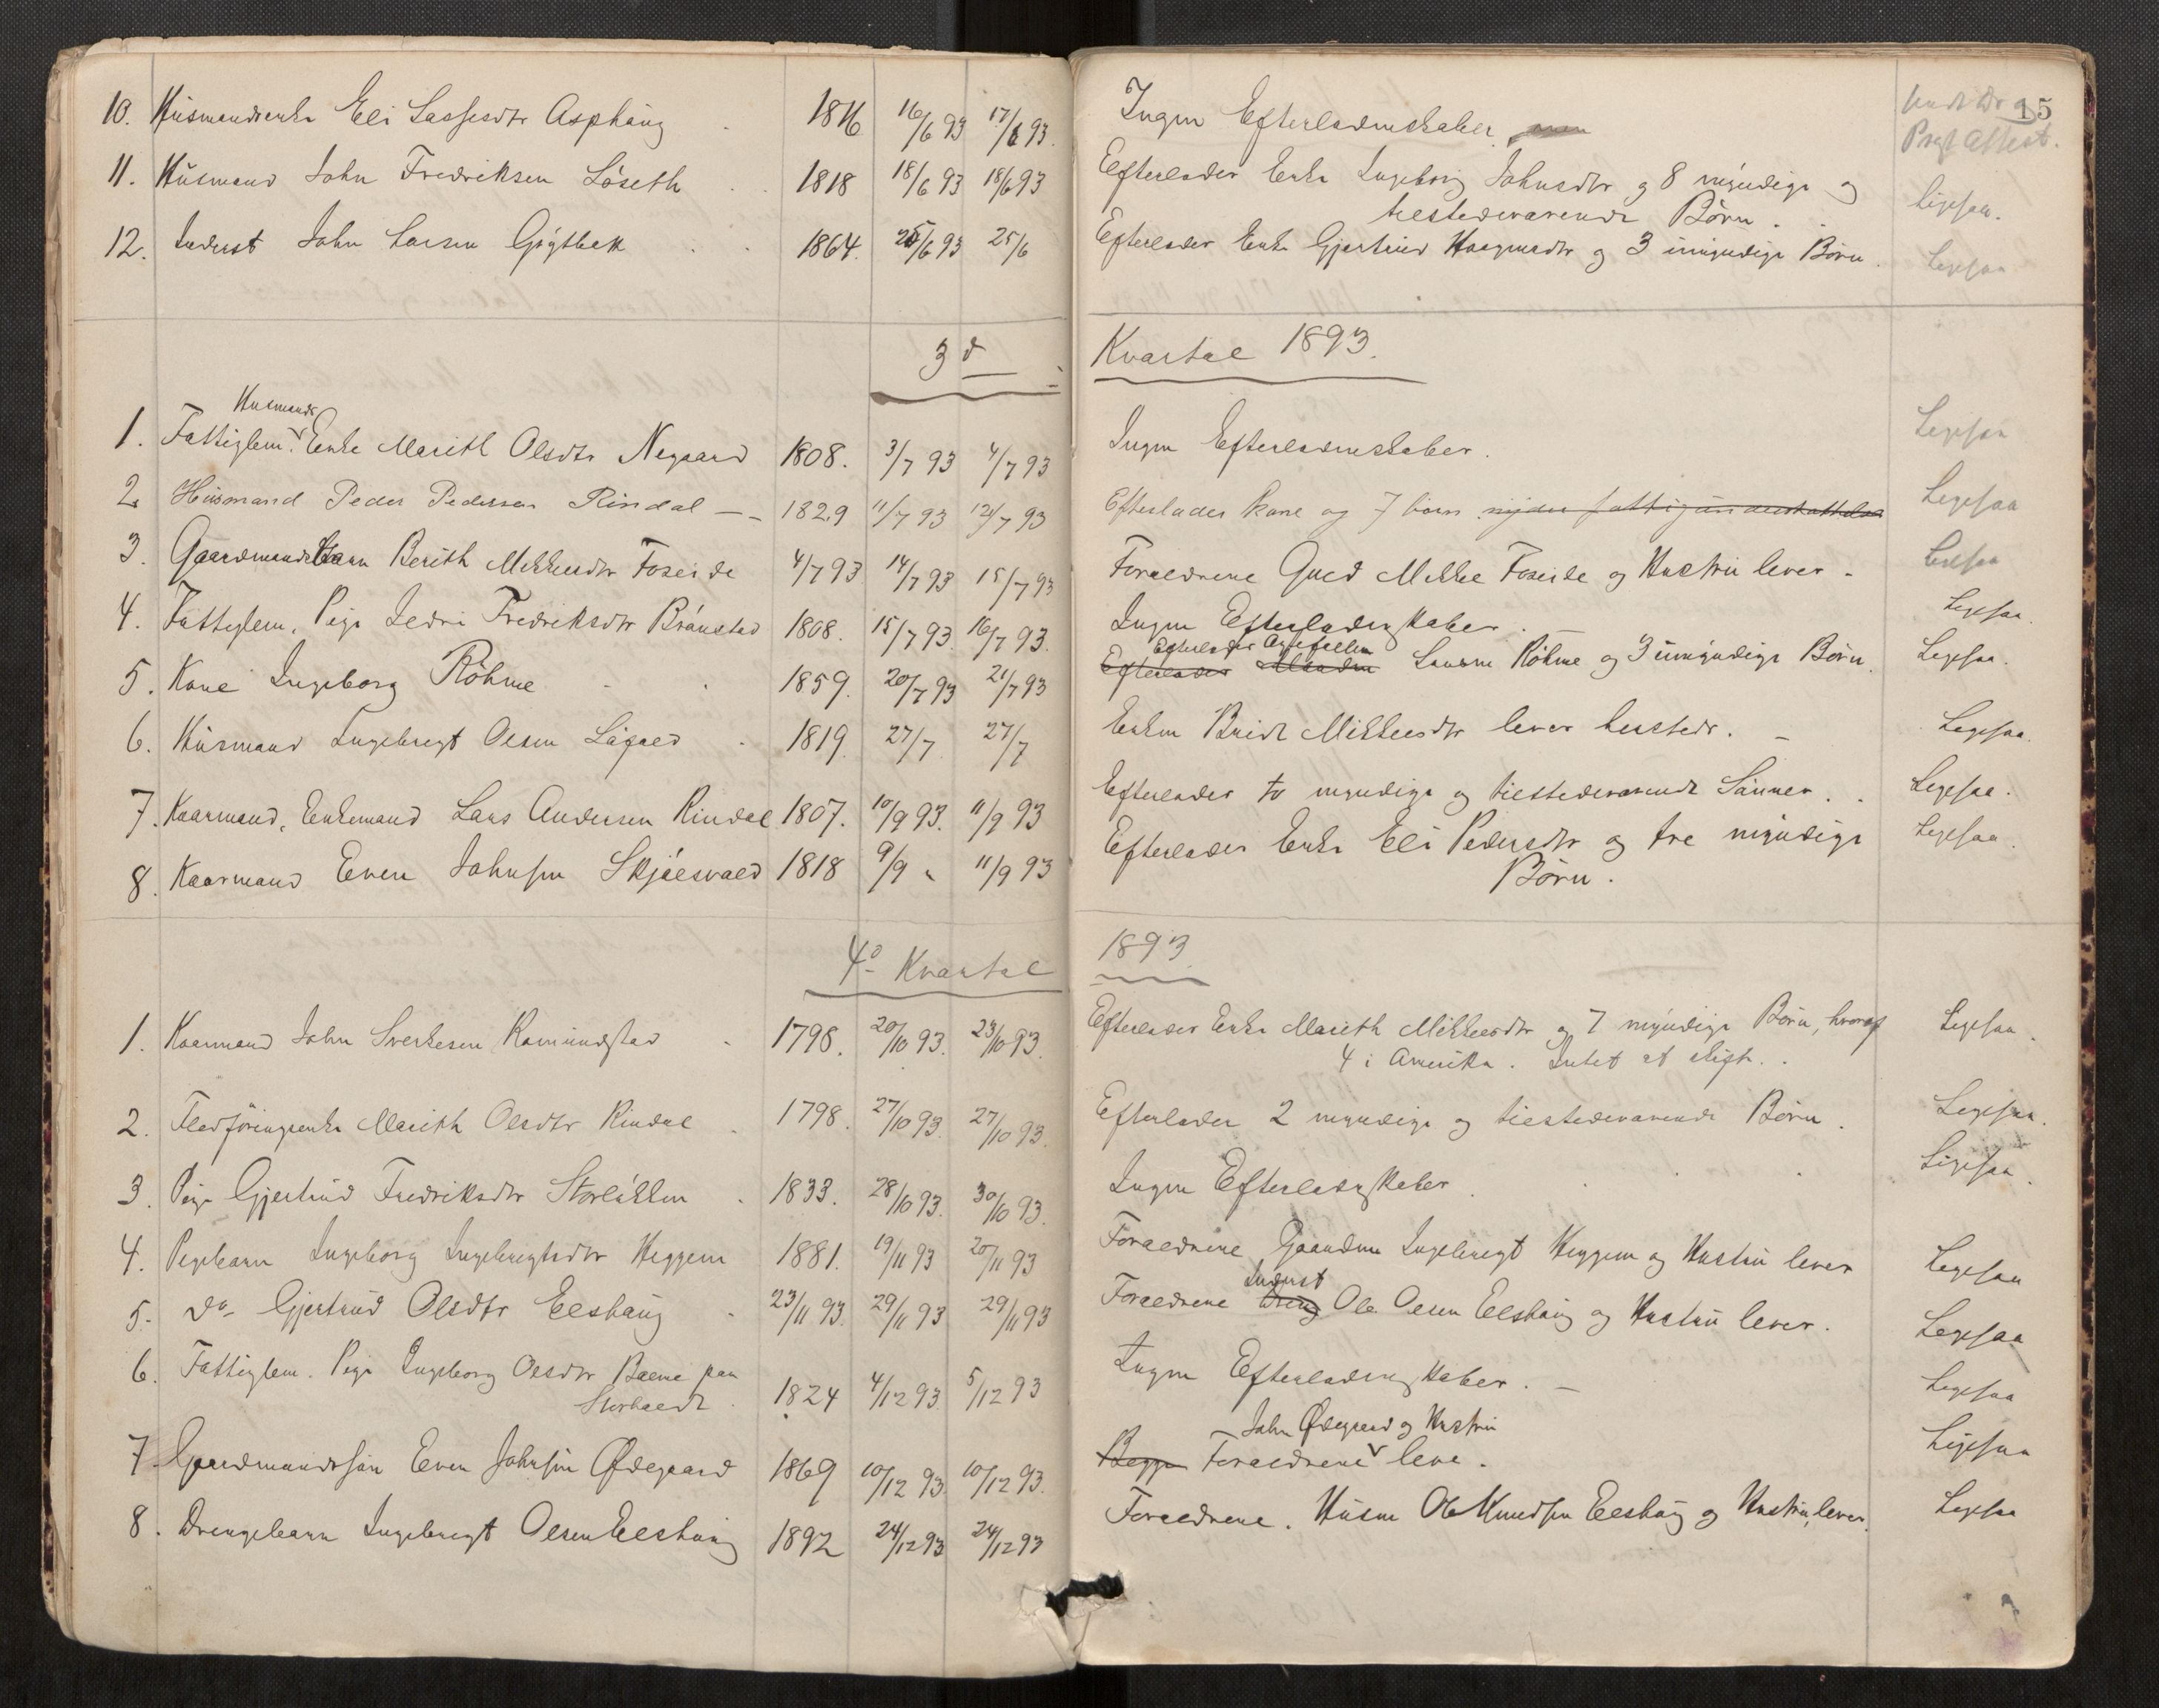 15
10. Husmandsenke Eli Lassesdtr Asphaug 1816 16/6 93 17/6 93. Ingen Efterladenskaber.
Prest Attest.
11. Husmand John Fredriksen Löseth 1818 18/6 93 18/6 93 Efterlader Enke Ingeborg Johnsdtr og 8 myndige og
tilstedeværende Börn. Ligesaa.
12. Inderst John Larsen 1864. 25/6 93 25/6 Efterlader Enke Gjertrud Haagensdtr og 3 umyndige Börn. Ligesaa
3d Kvartal 1893.
Husmands
1. Fattiglem. Enke Marith Olsdtr Negaard 1808. 3/7 93 4/7 93 Ingen Efterladenskaber. Ligesaa
2. Husmand Peder Pedersen Rindal 1829 11/7 93 12/7 93 Efterlader kone og 7 börn nyder fattigunderstøttelse Ligesaa
3. Gaardmandsbarn Berith Mikkelsdtr Foseide 4/7 93 14/7 93 15/7 93 Forældrene Gmd Mikkel Foseide og Hustru lever. Ligesaa
4. Fattiglem. Pige Sedri Fredriksdtr Brönstad 1808. 15/7 93. 16/7 93. Ingen Efterladenskaber. Ligesaa.
Efterlader
5. Kone Ingeborg Röhme 1859. 20/7 93 21/7 93 Efterlader Larsen Röhme og 3 umyndige Börn. Ligesaa.
6. Husmand Ingebrigt Olsen Lögald 1819. 27/7 27/7 Enken Brit Mikkelsdtr lever hersteds. Ligesaa.
7. Kaarmand, Enkemand Lars Andersen Rindal 1807. 10/9 93. 11/9 93 Efterlader to myndige og tilstedeværende Sönner. Ligesaa.
8. Kaarmand Even Johnsen Skjölsvold 1818 9/9 " 11/9 93 Efterlader Enke Eli Pedersdtr og tre myndige
Börn. Ligesaa.
4d Kvartal 1893
1. Kaarmand John Sverkesen Romundstad 1798. 20/10 93. 23/10 93. Efterlader Enke Marith Mikkelsdtr og 7 myndige Börn, hvoraf
4 i Amerika. Intet at skifte. Ligesaa.
2. Fledföringsenke Marith Olsdtr Rindal 1798. 27/10 93. 27/10 93. Efterlader 2 myndige og tilstedeværende Börn. Ligesaa.
3. Pige Gjertrud Fredriksdtr Storlökken 1833. 28/10 93. 30/10 93. Ingen Efterladenskaber. Ligesaa.
4. Pigebarn Ingeborg Ingebrigtsdtr Heggem 1881. 19/11 93 20/11 93 Forældrene Gaardm Ingebrigt Heggem og Hustru lever Ligesaa
Inderst
5. Do Gjertrud Olsdtr Elshaug 23/11 93. 29/11 93 29/11 93 Forældrene Dreng Ole Olsen Elshaug og Hustru lever. Ligesaa
6. Fattiglem. Pige Ingeborg Olsdtr Bolme paa
Storholt 1824 4/12 93. 5/12 93 Ingen Efterladenskaber. Ligesaa
John Ødegaard og Hustru
7. Gaardmandssön Even Johnsen Ødegaard 1869 10/12 93. 10/12 93. Begge Forældrene leve. Ligesaa
8. Drengebarn Ingebrigt Olsen Elshaug 1892 24/12 93 24/12 93 Forældrene. Husm Ole Knudsen Elshaug og Hustru, lever. Ligesaa